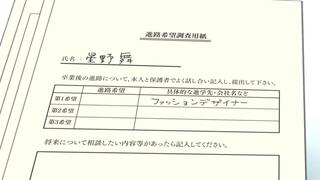 進路希望調査用紙
氏名: 星野 舞
卒業後の進路について、本人と保護者でよく話し合い記入し、提出して下さい。
進路希望 具体的な進学先・会社名など
第1希望 ファッションデザイナー
第2希望
第3希望
将来について相談したい内容等があったら記入してください。